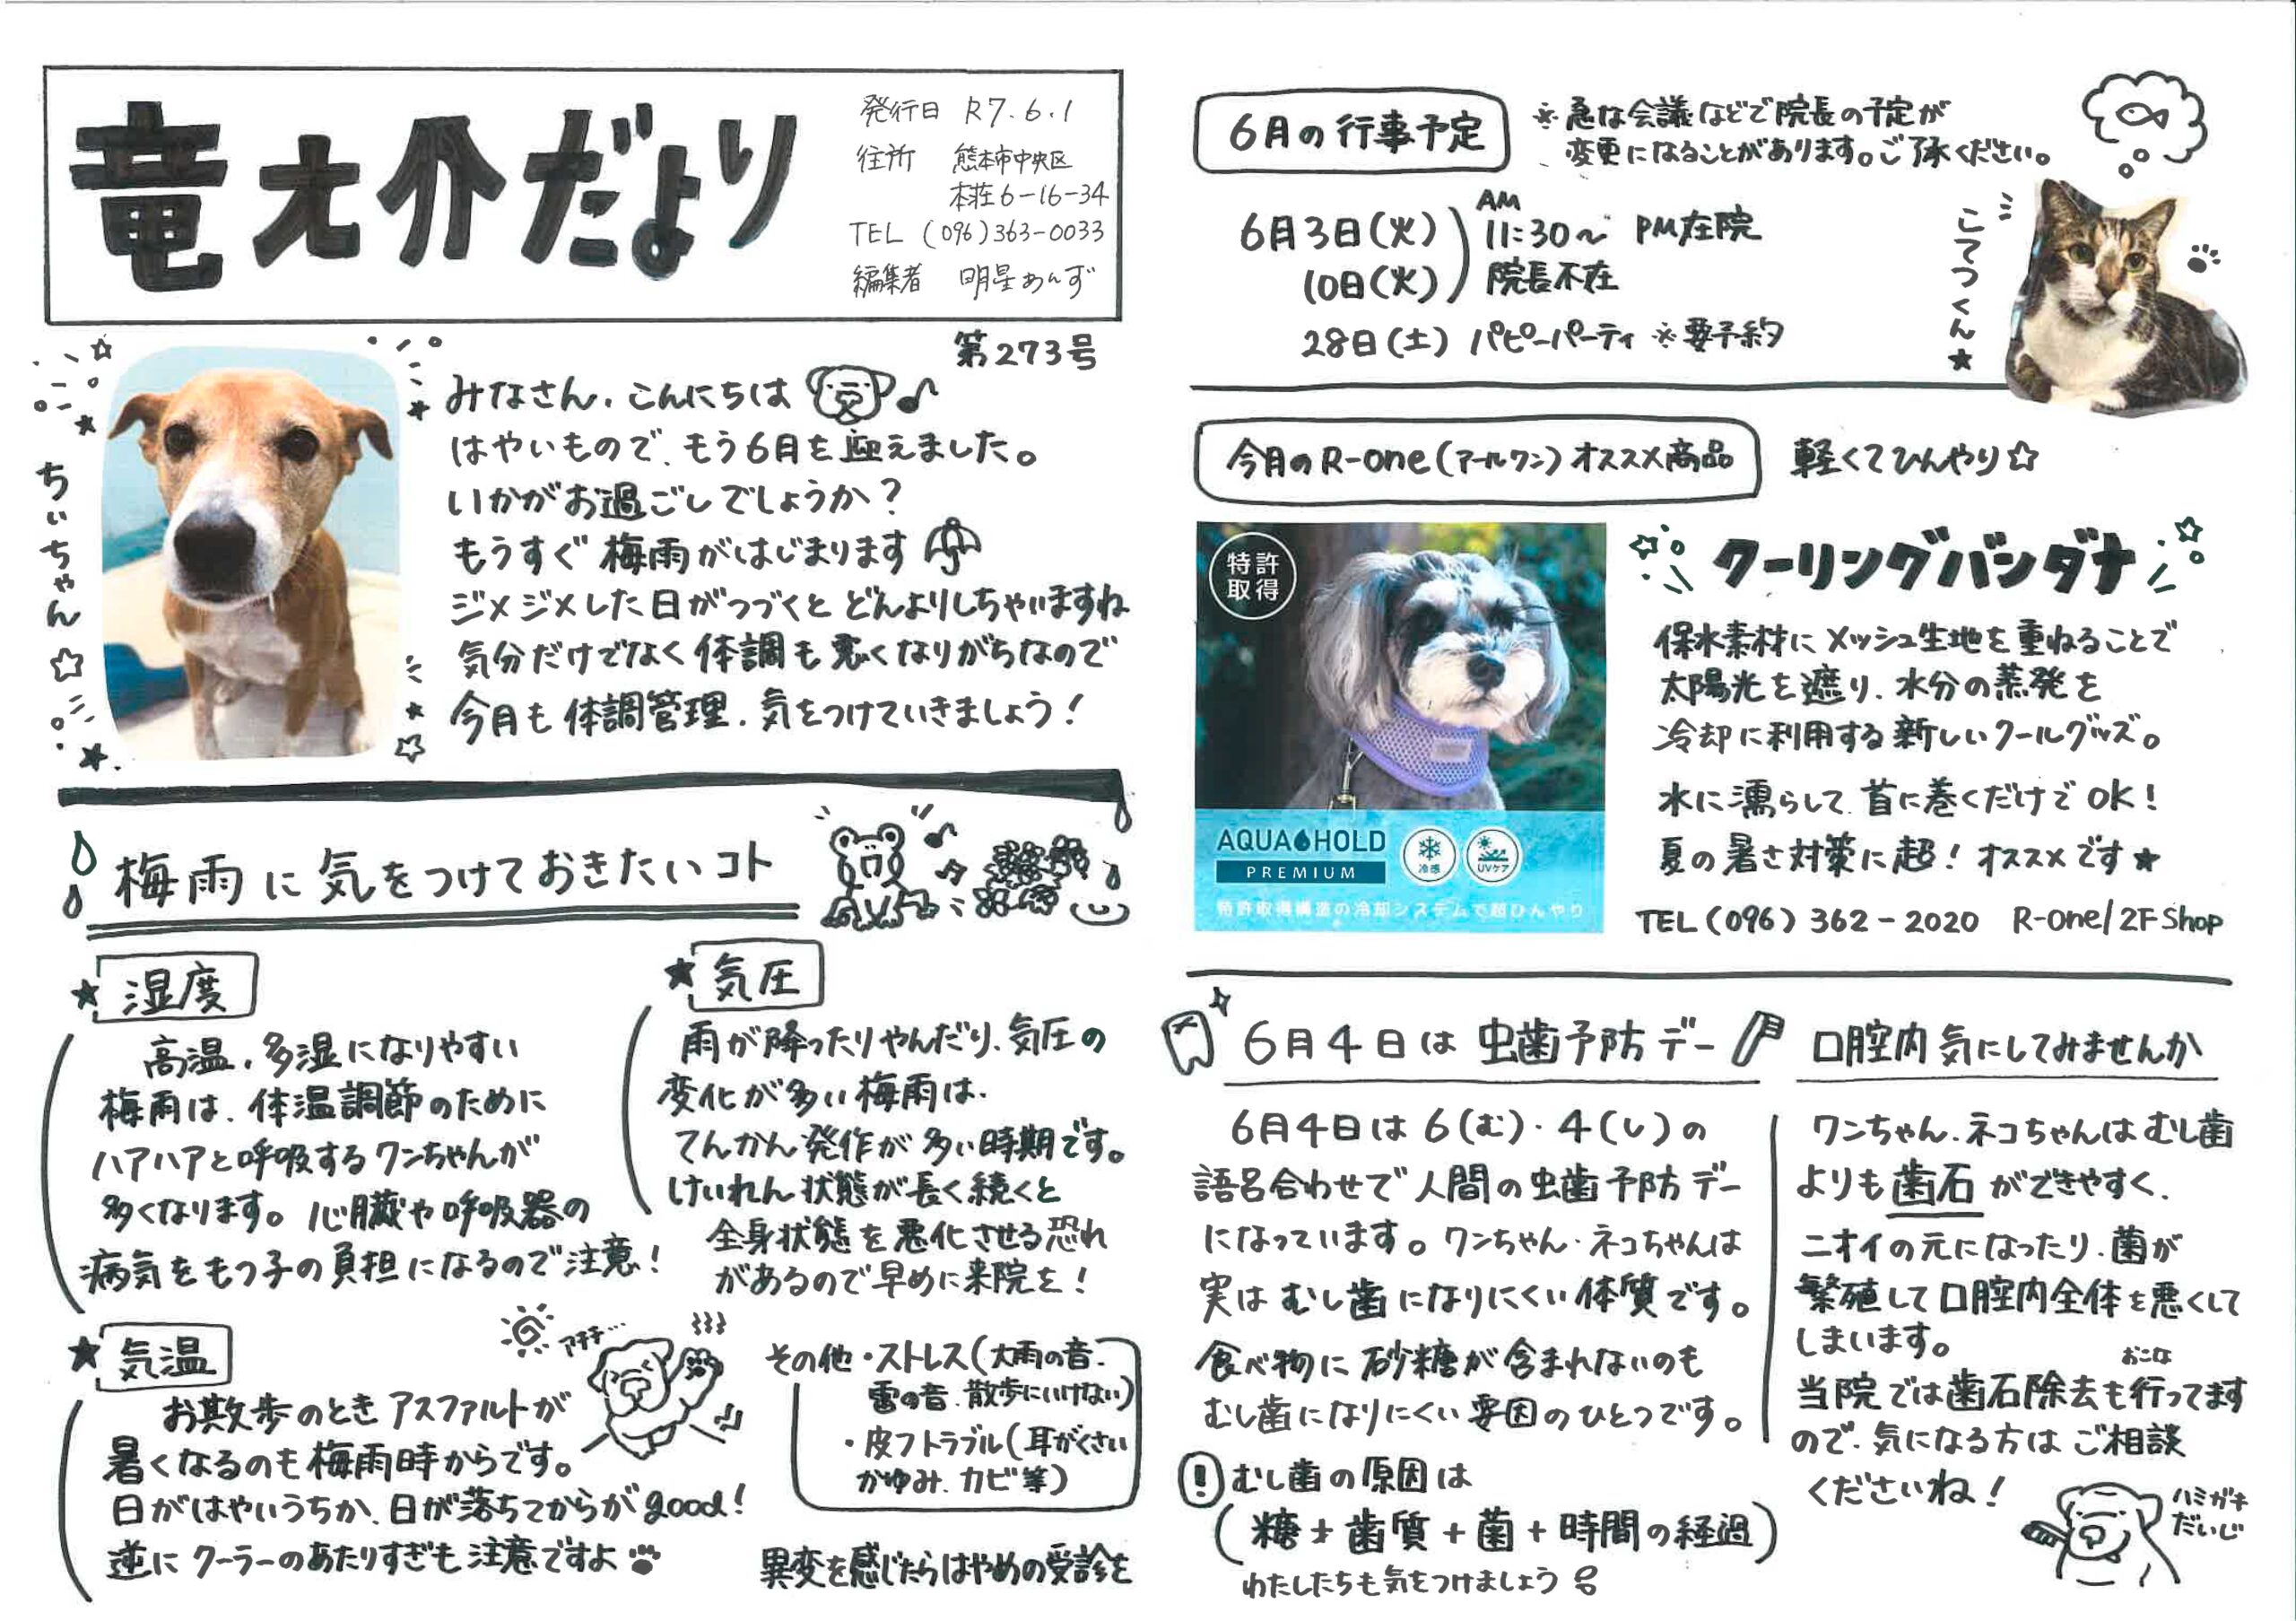 竜之介だより
発行日 R7.6.1
住所 熊本市中央区
本荘6-16-34
TEL (096)363-0033
編集者 明星あんず
第273号
ちぃちゃん☆
みなさん、こんにちは♪
はやいもので、もう6月を迎えました。
いかがお過ごしでしょうか?
もうすぐ梅雨がはじまります
ジメジメした日がつづくとどんよりしちゃいますね
気分だけでなく体調も悪くなりがちなので
今月も体調管理、気をつけていきましょう!
梅雨に気をつけておきたいコト
★湿度
高温、多湿になりやすい
梅雨は、体温調節のために
ハアハアと呼吸するワンちゃんが
多くなります。心臓や呼吸器の
病気をもつ子の負担になるので注意!
★気圧
雨が降ったりやんだり、気圧の
変化が多い梅雨は、
てんかん発作が多い時期です。
けいれん状態が長く続くと
全身状態を悪化させる恐れ
があるので早めに来院を!
★気温
アチチ…
お散歩のときアスファルトが
暑くなるのも梅雨時からです。
日がはやいうちか、日が落ちてからがgood!
逆にクーラーのあたりすぎも注意ですよ
その他・ストレス(大雨の音、
雷の音、散歩にいけない)
・皮フトラブル(耳がくさい
かゆみ、カビ等)
異変を感じたらはやめの受診を
6月の行事予定
※急な会議などで院長の予定が
変更になることがあります。ご了承ください。
6月3日(火)
10日(火)
AM
11:30~ PM在院
院長不在
28日(土) パピーパーティ ※要予約
こてつくん★
今月のR-one(アールワン)オススメ商品
軽くてひんやり☆
特許
取得
AQUA HOLD
PREMIUM
冷感
UVケア
特許取得構造の冷却システムで超ひんやり
クーリングバンダナ
保水素材にメッシュ生地を重ねることで
太陽光を遮り、水分の蒸発を
冷却に利用する新しいクールグッズ。
水に濡らして首に巻くだけでOK!
夏の暑さ対策に超!オススメです★
TEL(096)362-2020 R-one/2F Shop
6月4日は虫歯予防デー
6月4日は6(む)・4(し)の
語呂合わせで人間の虫歯予防デー
になっています。ワンちゃん・ネコちゃんは
実はむし歯になりにくい体質です。
食べ物に砂糖が含まれないのも
むし歯になりにくい要因のひとつです。
!むし歯の原因は
(糖+歯質+菌+時間の経過)
わたしたちも気をつけましょう
口腔内気にしてみませんか
ワンちゃん、ネコちゃんはむし歯
よりも歯石ができやすく、
ニオイの元になったり、菌が
繁殖して口腔内全体を悪くして
しまいます。
おこな
当院では歯石除去も行ってます
ので、気になる方はご相談
くださいね!
ハミガキ
だいじ